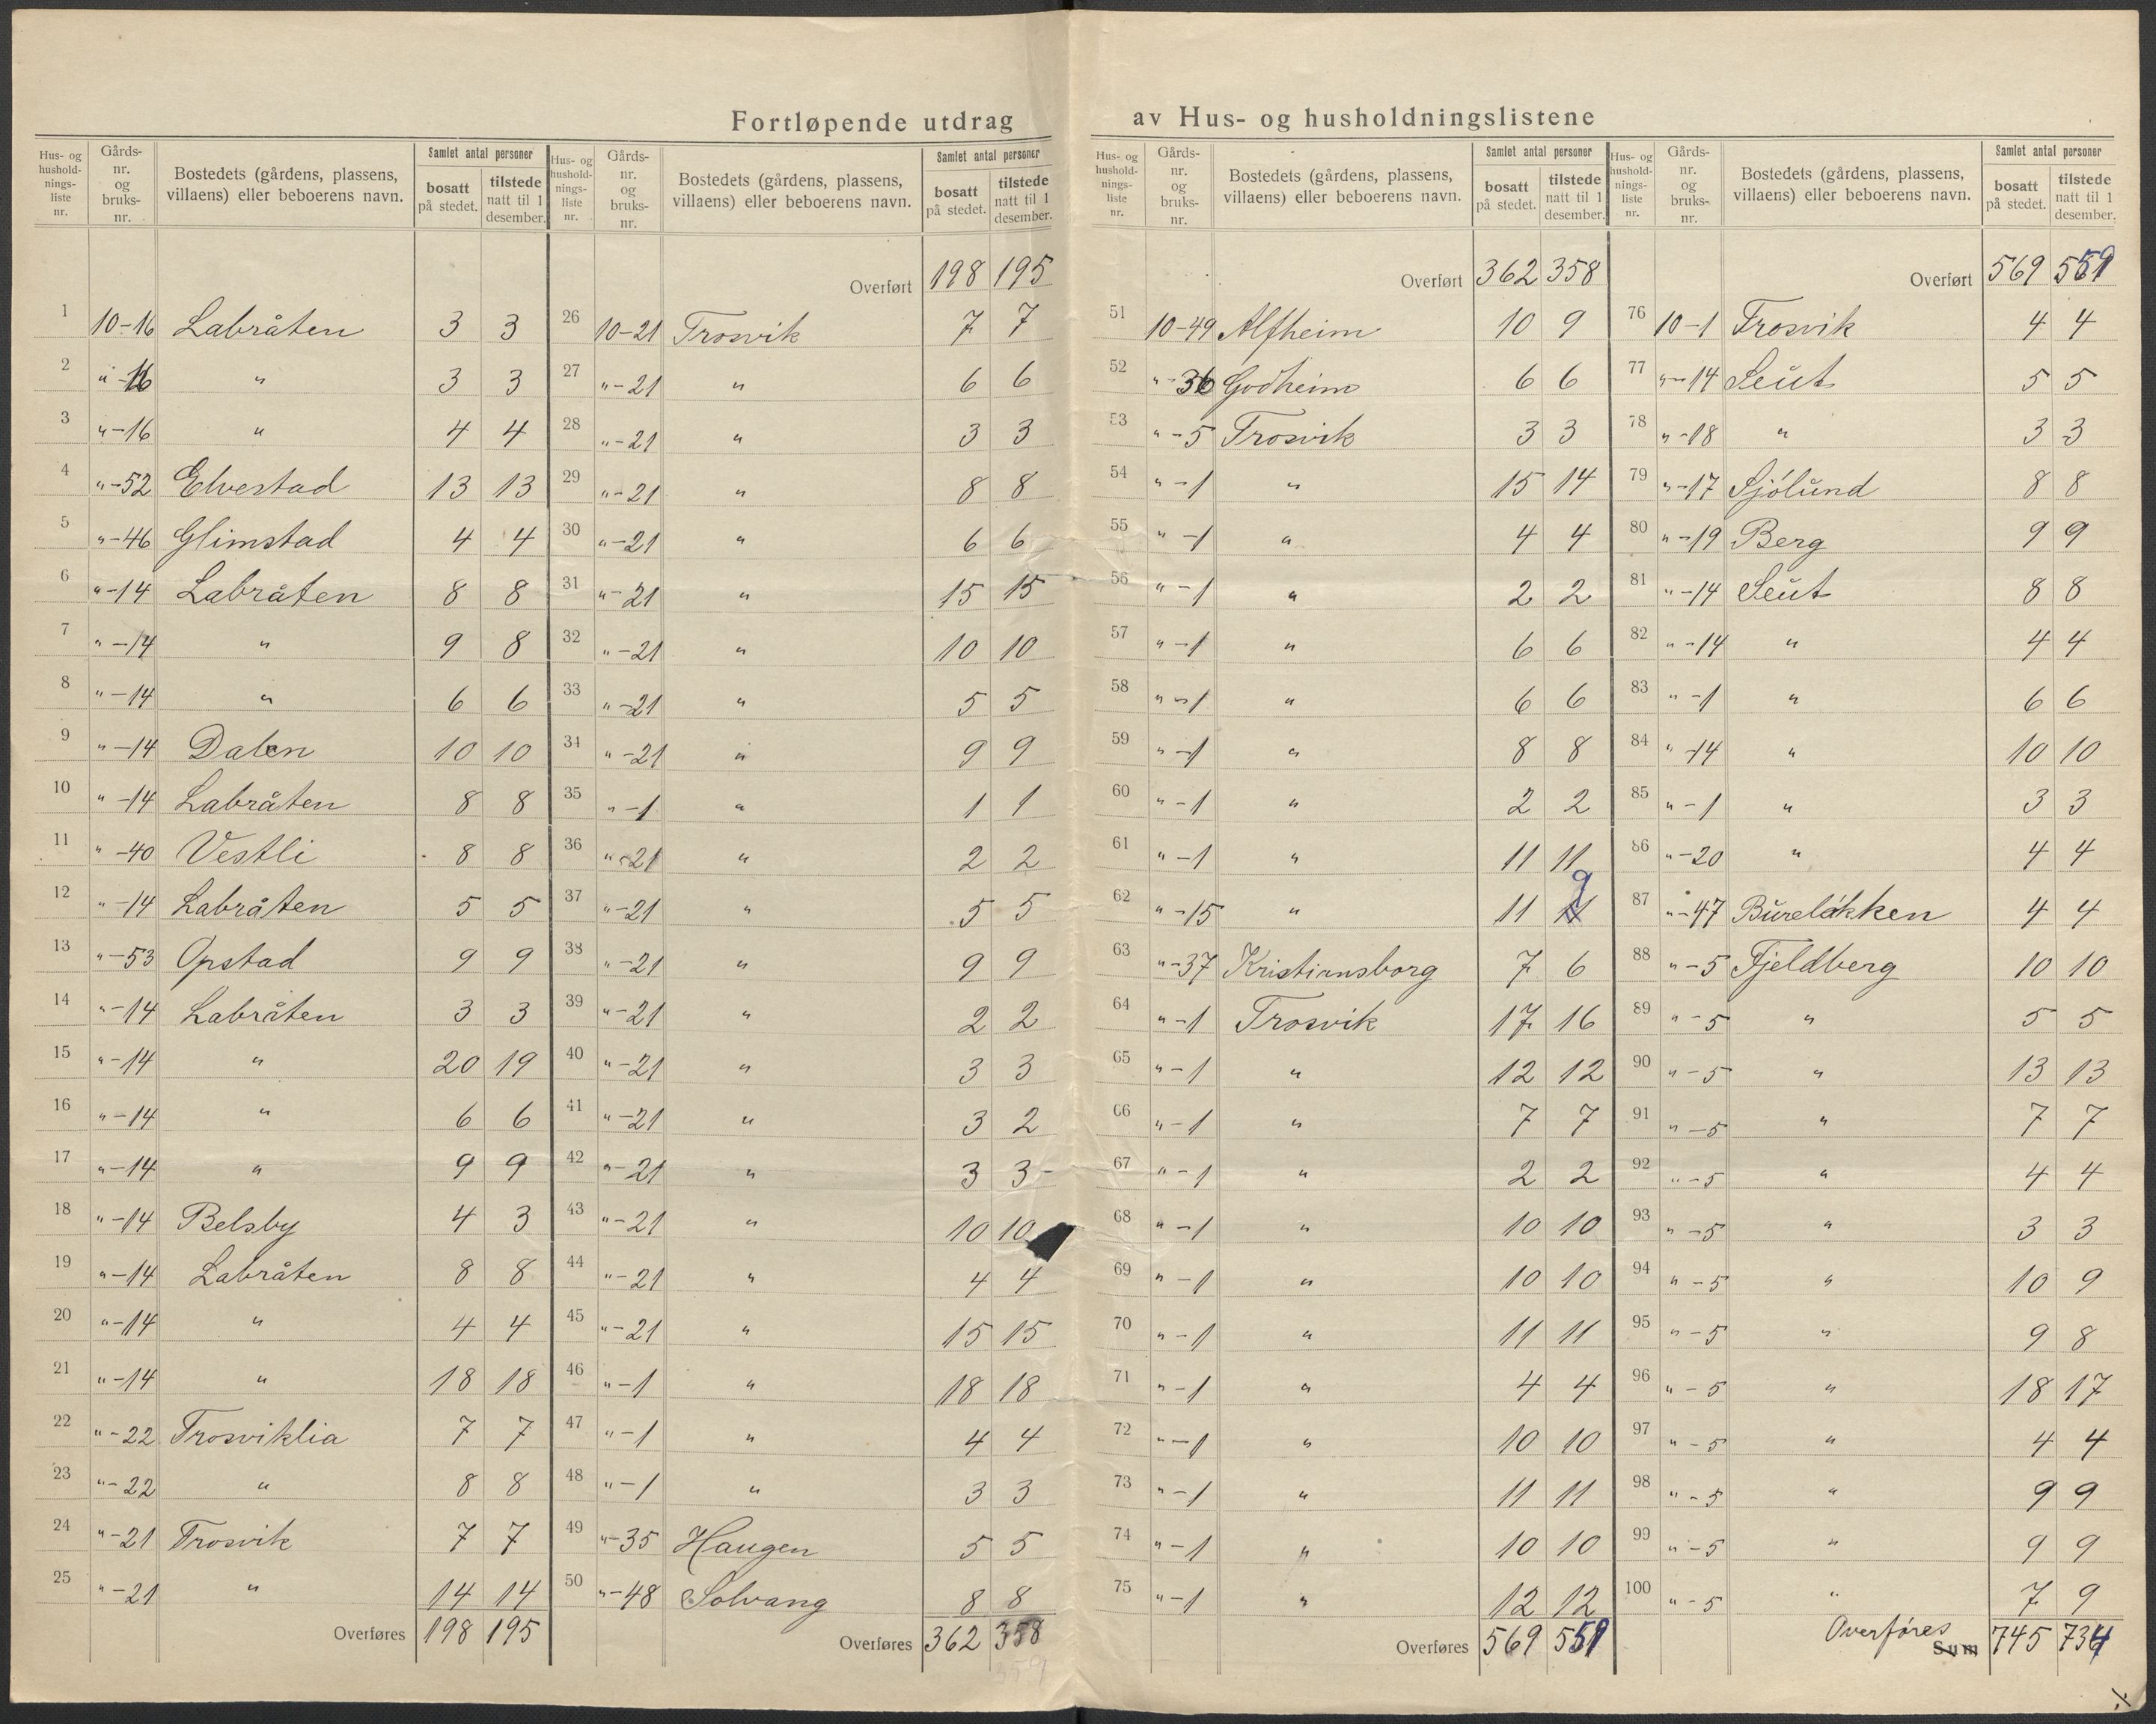 Fortløpende utdrag av Hus- og husholdningslistene
Hus- og husholdnings- liste nr. | Gårds- nr. og bruks- nr. | Bostedets (gårdens, plassens, villaens) eller beboerens navn. | Samlet antal personer | bosatt på stedet. | tilstede natt til 1 desember.
1 10-16 Labråten 3 3
2 " -16 " 3 3
3 " -16 " 4 4
4 " -52 Elvestad 13 13
5 " -46 Glimstad 4 4
6 " -14 Labråten 8 8
7 " -14 " 9 8
8 " -14 " 6 6
9 " -14 Dalen 10 10
10 " -14 Labråten 8 8
11 " -40 Vestli 8 8
12 " -14 Labråten 5 5
13 " -53 Opstad 9 9
14 " -14 Labråten 3 3
15 " -14 " 20 19
16 " -14 " 6 6
17 " -14 " 9 9
18 " -14 Belsby 4 3
19 " -14 Labråten 8 8
20 " -14 " 4 4
21 " -14 " 18 18
22 " -22 Trosviklia 7 7
23 " -22 " 8 8
24 " -21 Trosvik 7 7
25 " -21 " 14 14
Overføres 198 195
Hus- og husholdnings- liste nr. | Gårds- nr. og bruks- nr. | Bostedets (gårdens, plassens, villaens) eller beboerens navn. | Samlet antal personer | bosatt på stedet. | tilstede natt til 1 desember.
Overført 198 195
26 10-21 Trosvik 7 7
27 " -21 " 6 6
28 " -21 " 3 3
29 " -21 " 8 8
30 " -21 " 6 6
31 " -21 " 15 15
32 " -21 " 10 10
33 " -21 " 5 5
34 " -21 " 9 9
35 " -1 " 1 1
36 " -21 " 2 2
37 " -21 " 5 5
38 " -21 " 9 9
39 " -21 " 2 2
40 " -21 " 3 3
41 " -21 " 3 2
42 " -21 " 3 3
43 " -21 " 10 10
44 " -21 " 4 4
45 " -21 " 15 15
46 " -1 " 18 18
47 " -1 " 4 4
48 " -1 " 3 3
49 " -35 Haugen 5 5
50 " -48 Solvang 8 8
Overføres 362 358
359
Hus- og husholdnings- liste nr. | Gårds- nr. og bruks- nr. | Bostedets (gårdens, plassens, villaens) eller beboerens navn. | Samlet antal personer | bosatt på stedet. | tilstede natt til 1 desember.
Overført 362 358
51 10-49 Alfheim 10 9
52 " -36 Godheim 6 6
53 " -5 Trosvik 3 3
54 " -1 " 15 14
55 " -1 " 4 4
56 " -1 " 2 2
57 " -1 " 6 6
58 " -1 " 6 6
59 " -1 " 8 8
60 " -1 " 2 2
61 " -1 " 11 11
62 " -15 " 11 9
63 " -37 Kristiansborg 7 6
64 " -1 Trosvik 17 16
65 " -1 " 12 12
66 " -1 " 7 7
67 " -1 " 2 2
68 " -1 " 10 10
69 " -1 " 10 10
70 " -1 " 11 11
71 " -1 " 4 4
72 " -1 " 10 10
73 " -1 " 11 11
74 " -1 " 10 10
75 " -1 " 12 12
Overføres 569 559
Hus- og husholdnings- liste nr. | Gårds- nr. og bruks- nr. | Bostedets (gårdens, plassens, villaens) eller beboerens navn. | Samlet antal personer | bosatt på stedet. | tilstede natt til 1 desember.
Overført 569 559
76 10-1 Trosvik 4 4
77 " -14 Seut 5 5
78 " -18 " 3 3
79 " -17 Sjölund 8 8
80 " -19 Berg 9 9
81 " -14 Seut 8 8
82 " -14 " 4 4
83 " -1 " 6 6
84 " -14 " 10 10
85 " -1 " 3 3
86 " -20 " 4 4
87 " -47 Bureløkken 4 4
88 " -5 Fjeldberg 10 10
89 " -5 " 5 5
90 " -5 " 13 13
91 " -5 " 7 7
92 " -5 " 4 4
93 " -5 " 3 3
94 " -5 " 10 9
95 " -5 " 9 8
96 " -5 " 18 17
97 " -5 " 4 4
98 " -5 " 9 9
99 " -5 " 9 9
100 " -5 " 7 9
Overføres Sum 745 734